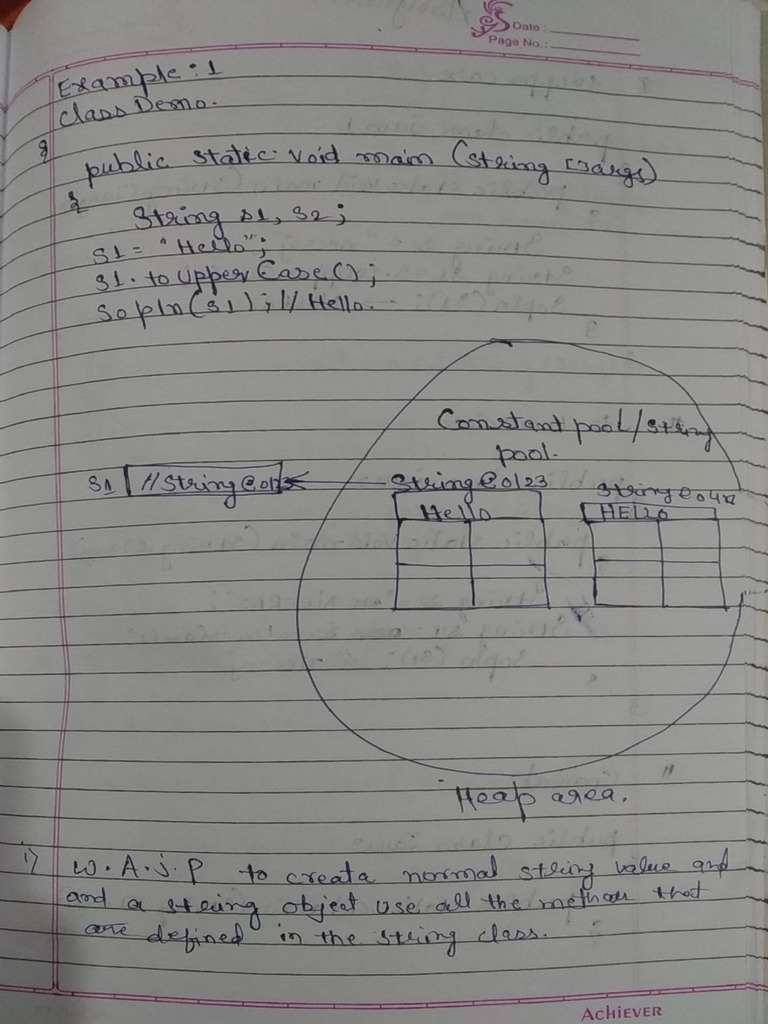 Date :
Page No. :
Example : 1
class Demo.
{
public static void main (string []args)
{
String s1, s2;
s1 = "Hello";
s1. to upper Case();
Sopln(s1); // Hello.
Constant pool / string
pool.
s1 // String@0123 String@0123 String@04
Hello HEllo
Heap area.
1) W. A. J. P to creata normal string value and
and a string object use all the methods that
are defined in the string class.
ACHIEVER